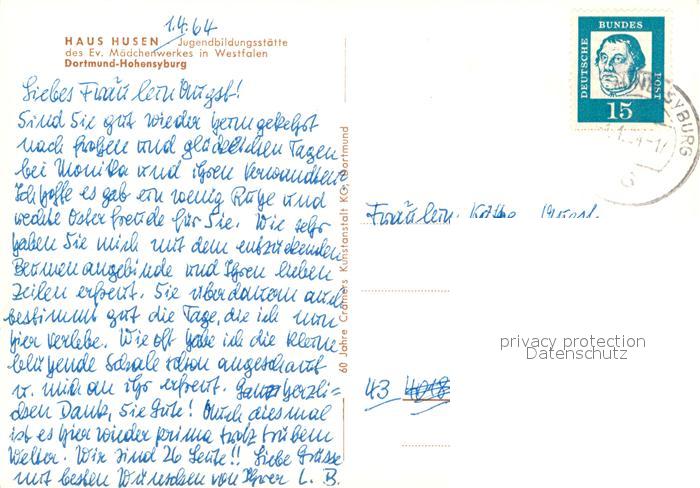 1.4.64
HAUS HUSEN Jugendbildungsstätte
des Ev. Mädchenwerkes in Westfalen
Dortmund-Hohensyburg
Liebes Fräulein Angst!
Sind Sie gut wieder heimgekehrt
nach frohen und glücklichen Tagen
bei Monika und Ihren Verwandten
Ich hoffe es gab ein wenig Ruhe und
rechte Osterfreude für Sie. Wie sehr
haben Sie mich mit dem entzückenden
Blumenangebinde und Ihren lieben
Zeilen erfreut. Sie überdauern auch
bestimmt gut die Tage, die ich nun
hier verlebe. Wie oft habe ich die kleine
blühende Schale schon angeschaut
u. mich an ihr erfreut. Ganz herzli=
chen Dank, Sie Gute! Auch diesmal
ist es hier wieder prima trotz trübem
Wetter. Wir sind 26 Leute!! Liebe Grüsse
mit besten Wünschen von Ihrer L. B.
60 Jahre Cramers Kunstanstalt KG, Dortmund
DEUTSCHE BUNDES POST
15
SYBURG
Fräulein Käthe
43
privacy protection
Datenschutz